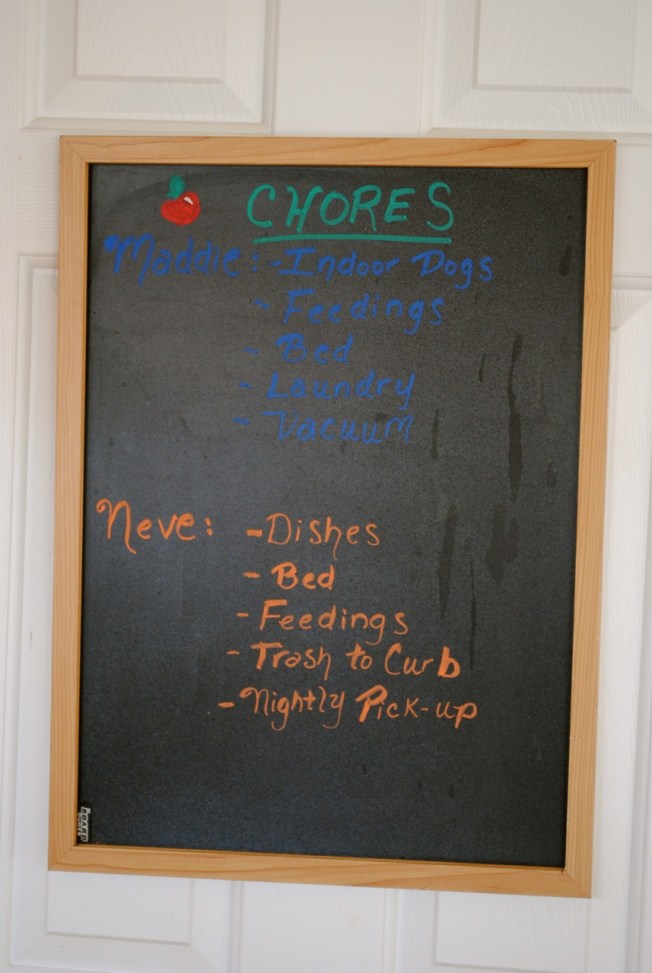 CHORES
Maddie: - Indoor Dogs
- Feedings
- Bed
- Laundry
- Vacuum
Neve: - Dishes
- Bed
- Feedings
- Trash to Curb
- Nightly Pick-up